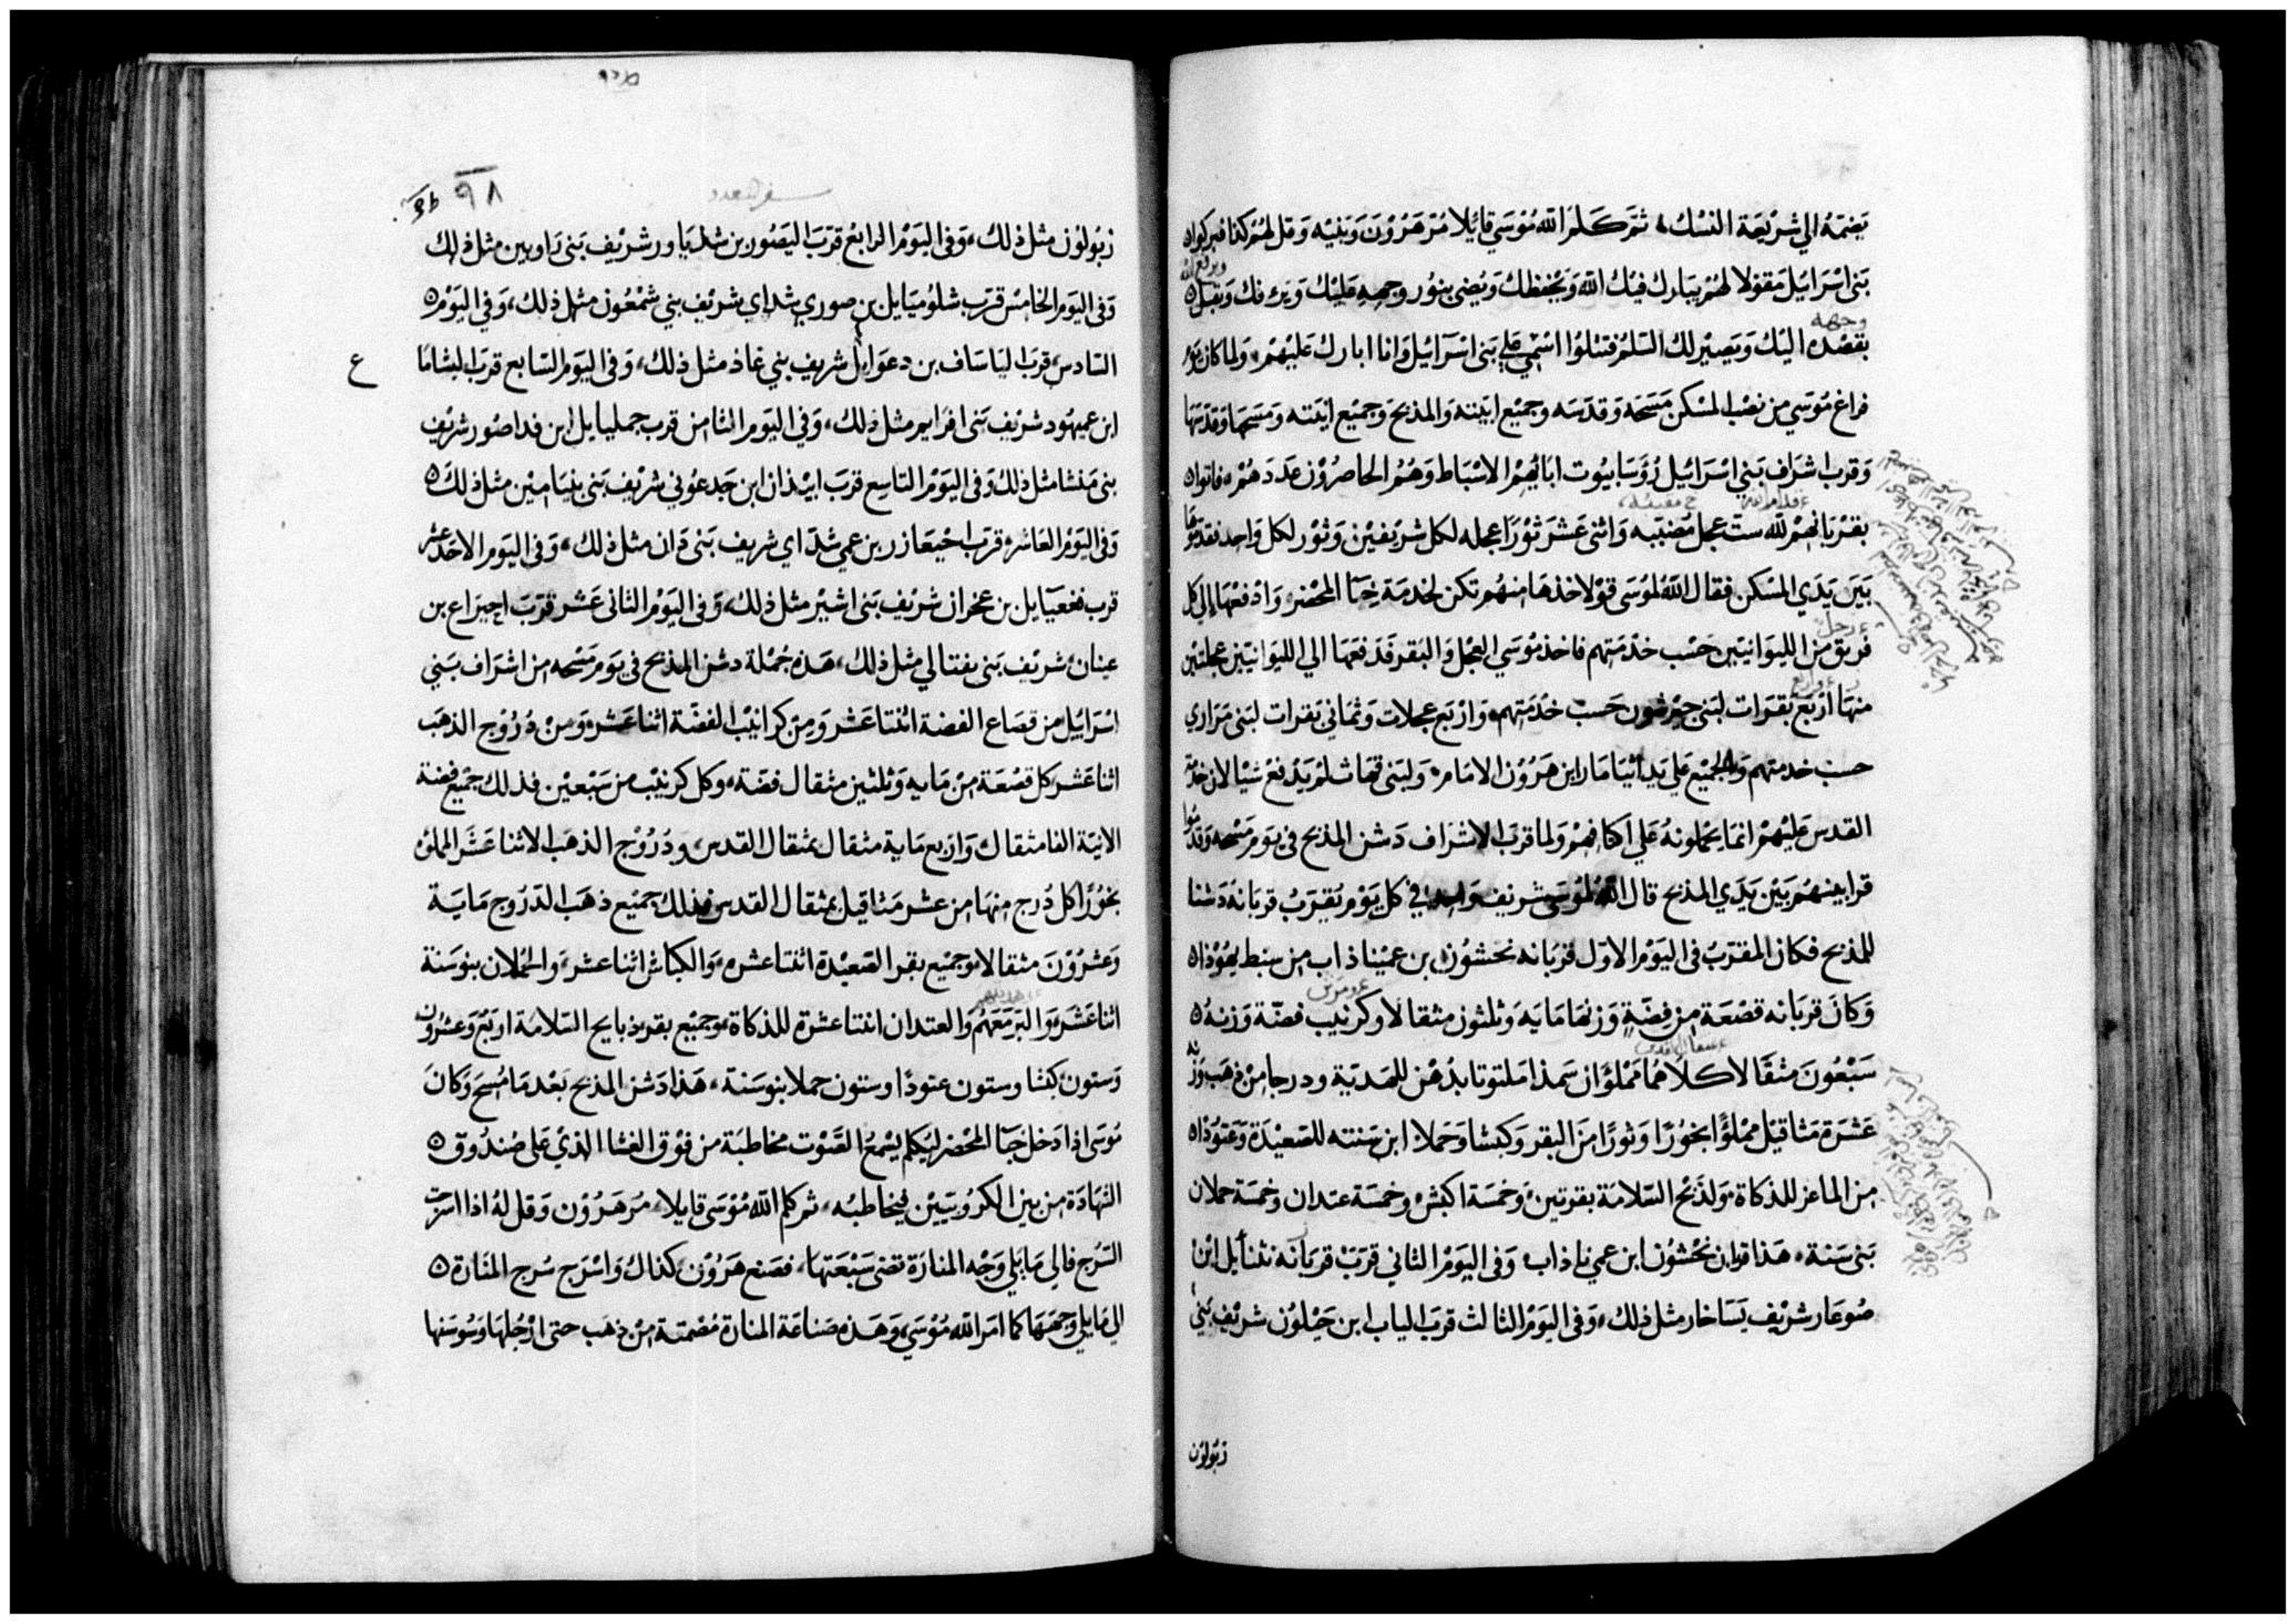 يضمه الي شريعة النسك ثم كلم الله موسي قائلا مر هرون وبنيه وقل لهم كذا فبركوا
بني اسرائيل مقولا لهم يبارك فيك الله ويحفظك ويضي بنور وجهه عليك ويرفك ويقبل
ويرفع الله
بقصده اليك ويصير لك السلم فتتلوا اسمي علي بني اسرائيل وانا ابارك عليهم ولما كان يوم
وجهه
فراغ موسي من نصب المسكن مسحه وقدسه وجميع ابيته والمذبح وجميع انيته ومسحها وقدسها
وقرب اشراف بني اسرائيل رؤسا بيوت ابائهم الاسباط وهم الحاضرون عددهم فاتوا
بقربانهم لله ست عجل مضببه واثني عشر ثورا عجله لكل شريفين وثور لكل واحد فقدموها
بين يدي المسكن فقال الله لموسي قولا خذها منهم تكن لخدمة خبا المحضر وادفعها الي كل
فريق من الليوانيين حسب خدمتهم فاخذ موسي العجل والبقر فدفعها الي الليوانيين عجلتين
رجل
منها اربع بقرات لبني جرشون حسب خدمتهم واربع عجلات وثماني بقرات لبني مراري
حسب خدمتهم والجميع علي يد اثيامار ابن هرون الامام ولبني قهاث لم يدفع شيا لان خدمة
القدس عليهم انما يحملونه علي اكتافهم ولما قرب الاشراف دشن المذبح في يوم مسحه وقدموا
قرابينهم بين يدي المذبح قال الله لموسي شريف واحد في كل يوم يقرب قربانه دشنا
للمذبح فكان المقرب في اليوم الاول قربانه نحشون بن عميناذاب من سبط يهوذا
وكان قربانه قصعة من فضة وزنها مايه وثلثون مثقالا وكرنيب فضة وزنه
سبعون مثقالا كلاهما مملؤان سمذا ملتوتا بدهن للهدية ودرجا من ذهب وزنه
عشرة مثاقيل مملؤا بخورا وثورا من البقر وكبشا وحملا ابن سنته للصعيدة وعتوذا
من الماعز للذكاة ولذبح السلامة بقرتين وخمسة اكبش وخمسة عتدان وخمسة حملان
بني سنة هذا قربان نحشون ابن عميناذاب وفي اليوم الثاني قرب قربانه نثنايل ابن
صوعار شريف يساخار مثل ذلك وفي اليوم الثالث قرب الياب ابن حيلون شريف بني
زبولون
٩٨
سفر العدد
زبولون مثل ذلك وفي اليوم الرابع قرب اليصور بن شدياور شريف بني راوبين مثل ذلك
وفي اليوم الخامس قرب شلوميايل بن صوري شداي شريف بني شمعون مثل ذلك وفي اليوم
السادس قرب الياساف بن دعوايل شريف بني غاذ مثل ذلك وفي اليوم السابع قرب اليشاما
ع
ابن عميهود شريف بني افرايم مثل ذلك وفي اليوم الثامن قرب جمليايل ابن فداصور شريف
بني منشا مثل ذلك وفي اليوم التاسع قرب ابيذان ابن جدعوني شريف بني بنيامين مثل ذلك
وفي اليوم العاشر قرب اخيعازر بن عمي شداي شريف بني دان مثل ذلك وفي اليوم الاحد عشر
قرب فغعيايل بن عخران شريف بني اشير مثل ذلك وفي اليوم الثاني عشر قرب احيراع بن
عينان شريف بني يفتالي مثل ذلك هذه جملة دشن المذبح في يوم مسحه من اشراف بني
اسرائيل من قصاع الفضة اثنتا عشر ومن كرانيب الفضة اثنا عشر ومن دروج الذهب
اثنا عشر كل قصعة من مايه وثلثين مثقال فضة وكل كرنيب من سبعين فذلك جميع فضة
الانية الفا مثقال واربع ماية مثقال بمثقال القدس ودروج الذهب الاثنا عشر المملؤ
بخورا كل درج منها من عشر مثاقيل بمثقال القدس فذلك جميع ذهب الدروج ماية
وعشرون مثقالا وجميع بقر الصعيدة اثنتا عشره والكباش اثنا عشر والحملان بنو سنة
اثنا عشر والبر معهم والعتدان اثنتا عشرة للذكاة وجميع بقر ذبايح السلامة اربع وعشرون
وستون كبشا وستون عتوذا وستون حملا بنو سنة هذا دشن المذبح بعد ما مسح وكان
موسي اذا دخل خبا المحضر ليكلم يسمع الصوت مخاطبة من فوق الغشا الذي علي صندوق
الشهادة من بين الكروبيين فيخاطبه ثم كلم الله موسي قايلا مر هرون وقل له اذا اسرجت
السرج فالي مايلي وجه المنارة تضي سبعتها فصنع هرون كذاك واسرج سرج المنارة
الي مايلي وجهها كما امر الله موسي وهذه صناعة المنارة مصمتة من ذهب حتي ارجلها وسوسنها